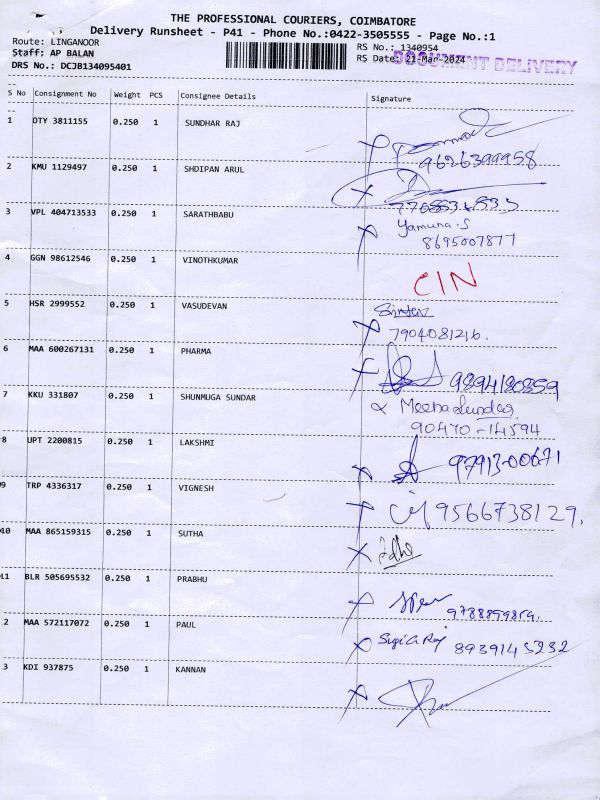 THE PROFESSIONAL COURIERS, COIMBATORE
Delivery Runsheet - P41 - Phone No.:0422-3505555 - Page No.:1
Route: LINGANOOR RS No.: 1340954
Staff: AP BALAN RS Date: 21-Mar-2024
DOCUMENT DELIVERY
DRS No.: DCJB134095401
S No Consignment No Weight PCS Consignee Details Signature
1 OTY 3811155 0.250 1 SUNDHAR RAJ
9626399958
2 KMU 1129497 0.250 1 SHDIPAN ARUL
3 VPL 404713533 0.250 1 SARATHBABU Yamuna.S
8695007877
4 GGN 98612546 0.250 1 VINOTHKUMAR
CIN
5 HSR 2999552 0.250 1 VASUDEVAN
7904081216.
6 MAA 600267131 0.250 1 PHARMA
9894180859
7 KKU 331807 0.250 1 SHUNMUGA SUNDAR Meenasundar
90470-14594
8 UPT 2200815 0.250 1 LAKSHMI
97913-00671
9 TRP 4336317 0.250 1 VIGNESH
9566738129.
10 MAA 865159315 0.250 1 SUTHA
11 BLR 505695532 0.250 1 PRABHU
9788859859.
2 MAA 572117072 0.250 1 PAUL
8939145232
3 KDI 937875 0.250 1 KANNAN